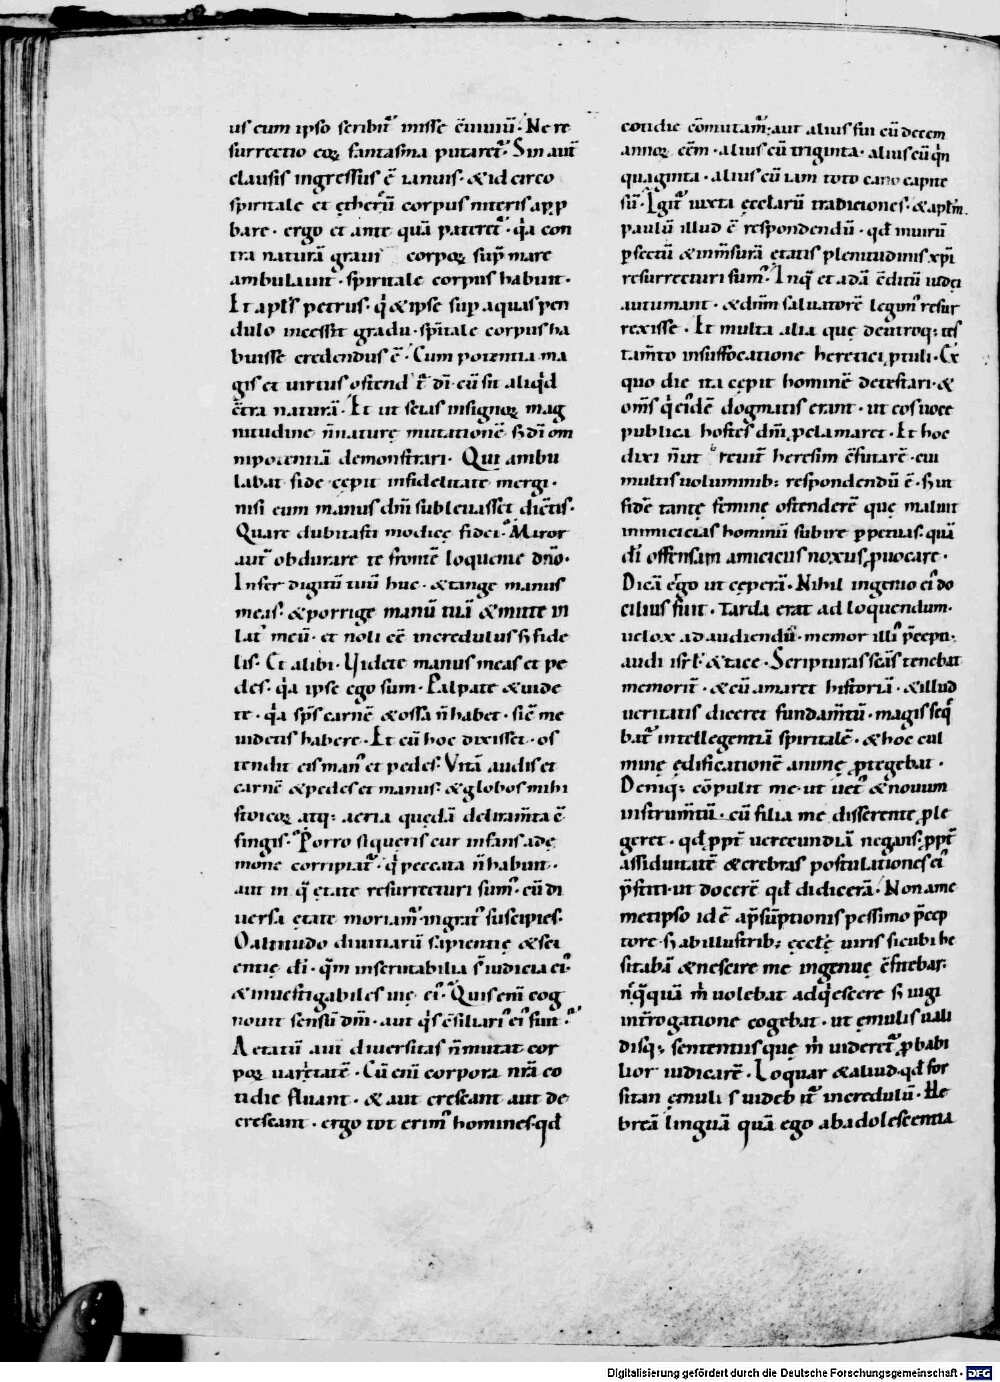 us cum ipso scribit᷑ inisse c̅uiuiũ. Ne re
surrectio eoꝝ fantasma putaret᷑. Sin aut̅
clausis ingressus ẽ ianuis. & idcirco
spiritale et ęthereũ corpus niteris app
bare. ergo et ante quã pateret᷑. qa con
tra naturã graui corpoꝝ sup̱ mare
ambulauit. spiritale corpus habuit.
Et apl̅s petrus. q̇ & ipse sup̱ aquas pen
dulo incessit gradu. sp̅itale corpus ha
buisse credendus ẽ. Cum potentia ma
gis et uirtus ostendat᷑ dĩ. cũ fit aliq̇d
c̅tra naturã. Et ut scias insignoꝝ mag
nitudine n̅ naturę mutationẽ ꜱ dĩ om
nipotentiã demonstrari. Qui ambu
labat fide cępit infidelitate mergi.
nisi eum manus dñi subleuasset dic̅tis.
Quare dubitasti modicę fidei. Miror
aut̅ obdurare te frontẽ loquente dño.
Infer digitũ tuũ huc. & tange manus
meas. & porrige manũ tuã & mitte in
lat᷒ meũ. et noli eẽ incredulus ꜱ fide
lis. Et alibi. Videte manus meas et pe
des. qa ipse ego sum. Palpate & uide
te. qa sp̅s carnẽ & ossa n̅ habet. sic̅ me
uidetis habere. Et cũ hoc dixisset. os
tendit eis man᷒ et pedes. Vitã audis et
carnẽ & pedes et manus. & globos mihi
stoicoꝝ atq; aeria quędã deliram̅ta c̅
fingis. Porro si queris cur infans a dę
mone corripiat᷑. q̇ peccata n̅ habuit.
aut in q̇ ętate resurrecturi sum᷒. cũ di
uersa ętate moriam᷑. ingrat᷒ suscipies.
O altitudo diuitiarũ sapientię & sci
entię dĩ. q̃m inscrutabilia s̅ iudicia ei᷒.
& inuestigabiles uię ei᷒. Quis eni̅ cog
nouit sensũ dñi. aut q̇s c̅siliari᷒ ei᷒ fuit.
Aetatũ aut̅ diuersitas n̅ mutat cor
poꝝ uarietatẽ. Cũ eni̅ corpora nr̅a co
tidie fluant. & aut crescant aut de
crescant. ergo tot erim᷒ homines. qd̅
cotidie c̅mutam᷑. aut alius fui cũ decem
annoꝝ eẽm. alius cũ triginta. alius cũ q̇n
quaginta. alius cũ iam toto cano capite
sũ. Igit᷑ iuxta ęccl̅arũ tradiciones. & apl̅m
paulũ illud ẽ respondendũ. qd̅ in uirũ
p̱fectũ & in m̅surã ętatis plenitudinis xp̅i
resurrecturi sum᷒. In q̇ et adã c̅ditũ iudei
autumant. & dñm saluatorẽ legim᷒ resur
rexisse. Et multa alia que de utroq; tes
tam̅to in suffocatione heretici ꝓtuli. Ex
quo die ita cępit hominẽ detestari. &
om̅s q̇ ei᷒dẽ dogmatis erant. ut eos uoce
publica hostes dñi ꝓclamaret. Et hoc
dixi n̅ ut breuit᷑ heresim c̅futarẽ. cui
multis uoluminib; respondendũ ẽ. ꜱ ut
fidẽ tantę feminę ostenderẽ que maluit
inimicicias hominũ subire ꝑpetuas. quã
dĩ offensam amiciciis noxiis ꝓuocare.
Dicã ergo ut cęperã. Nihil ingenio ei᷒ do
cilius fuit. Tarda erat ad loquendum.
uelox ad audiendũ. memor illi᷒ p̅cepti.
audi isrl̅ & tace. Scripturas sc̅as tenebat
memorit᷑. & cũ amaret historiã. & illud
ueritatis diceret fundam̅tũ. magis seq̇
bat᷑ intellegentiã spiritalẽ. & hoc cul
minę ędificationẽ animę ꝓtegebat.
Deniq; c̅pulit me. ut uet᷒ & nouum
instrum̅tũ. cũ filia me disserente ꝑle
geret. qd̅ ꝓpt᷑ uerecundiã negans. ꝓpt᷑
assiduitatẽ & crebras postulationes ei᷒
p̅stiti. ut docerẽ qd̅ didicerã. Non a me
metipso id ẽ a p̅sũptionis pessimo p̅cep
tore. ꜱ ab illustrib; ęccl̅ę uiris sicubi hę
sitabã & nescire me ingenue c̅fitebar.
n̅q̇quã m̅ uolebat adq̇escere ꜱ iugi
int᷑rogatione cogebat. ut ę multis uali
disq; sententiis que m̅ uideret᷑ ꝓbabi
lior iudicarẽ. Loquar & aliud. qd̅ for
sitan ęmulis uidebit᷑ incredulũ. He
breã linguã quã ego ab adolescentia